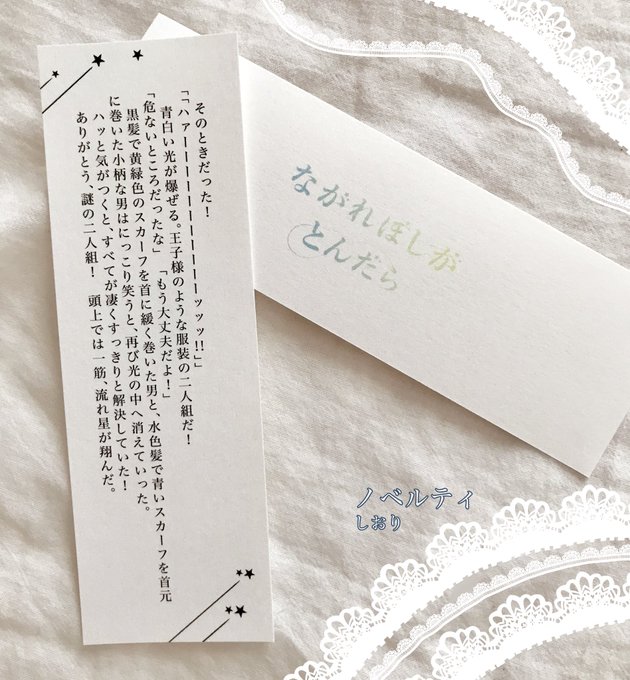 そのときだった！
「「ハァーーーーーーーーーーッッッ!!」」
青白い光が爆ぜる。王子様のような服装の二人組だ！
「危ないところだったな」　「もう大丈夫だよ！」
黒髪で黄緑色のスカーフを首に緩く巻いた男と、水色髪で青いスカーフを首元
に巻いた小柄な男はにっこり笑うと、再び光の中へ消えていった。
ハッと気がつくと、すべてが凄くすっきりと解決していた！
ありがとう、謎の二人組！　頭上では一筋、流れ星が翔んだ。
ながれぼしが
とんだら
ノベルティ
しおり